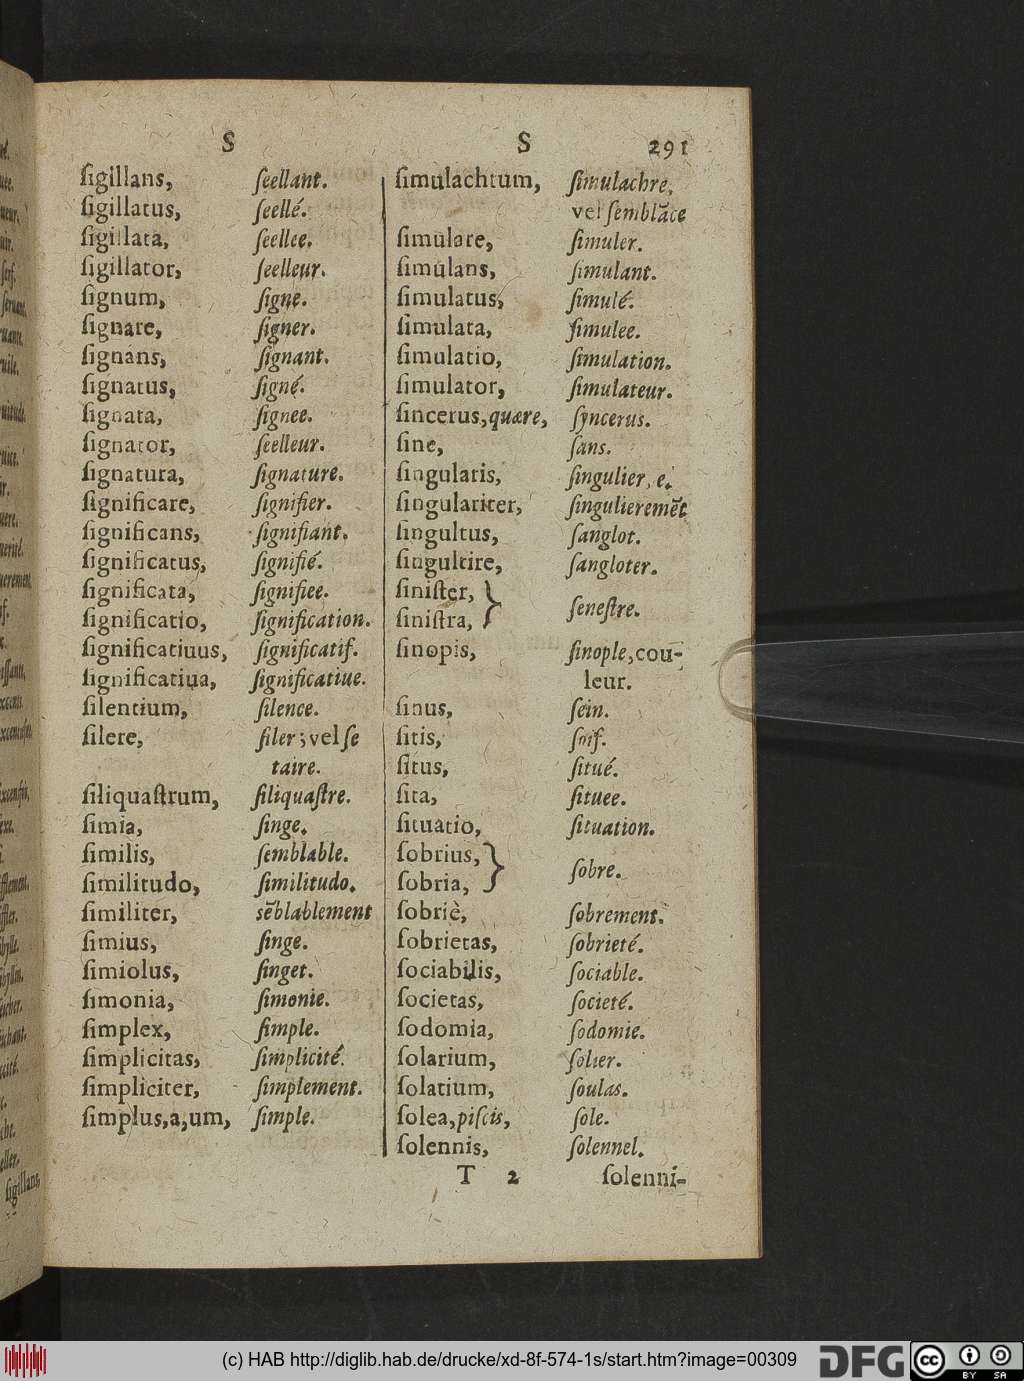 S S 291
ſigillans, ſeellant.
ſigillatus, ſeellé.
ſigillata, ſeellee.
ſigillator, ſeelleur.
ſignum, ſigne.
ſignare, ſigner.
ſignans, ſignant.
ſignatus, ſigné.
ſignata, ſignee.
ſignator, ſeelleur.
ſignatura, ſignature.
ſignificare, ſignifier.
ſignificans, ſignifiant.
ſignificatus, ſignifié.
ſignificata, ſignifiee.
ſignificatio, ſignification.
ſignificatiuus, ſignificatif.
ſignificatiua, ſignificatiue.
ſilentium, ſilence.
ſilere, ſiler; vel ſe
taire.
ſiliquaſtrum, ſiliquaſtre.
ſimia, ſinge.
ſimilis, ſemblable.
ſimilitudo, ſimilitudo.
ſimiliter, sẽblablement
ſimius, ſinge.
ſimiolus, ſinget.
ſimonia, ſimonie.
ſimplex, ſimple.
ſimplicitas, ſimplicité.
ſimpliciter, ſimplement.
ſimplus,a,um, ſimple.
ſimulachtum, ſimulachre,
vel ſemblãce
ſimulare, ſimuler.
ſimulans, ſimulant.
ſimulatus, ſimulé.
ſimulata, ſimulee.
ſimulatio, ſimulation.
ſimulator, ſimulateur.
ſincerus,quære, ſyncerus.
ſine, ſans.
ſingularis, ſingulier, e.
ſingulariter, ſingulieremẽt
ſingultus, ſanglot.
ſingultire, ſangloter.
ſiniſter, }
ſiniſtra, ſeneſtre.
ſinopis, ſinople, cou-
leur.
ſinus, ſein.
ſitis, ſoif.
ſitus, ſitué.
ſita, ſituee.
ſituatio, ſituation.
ſobrius, }
ſobria, ſobre.
ſobriè, ſobrement.
ſobrietas, ſobrieté.
ſociabilis, ſociable.
ſocietas, ſocieté.
ſodomia, ſodomie.
ſolarium, ſolier.
ſolatium, ſoulas.
ſolea,piſcis, ſole.
ſolennis, ſolennel.
T 2 ſolenni-
(c) HAB http://diglib.hab.de/drucke/xd-8f-574-1s/start.htm?image=00309
DFG cc BY SA